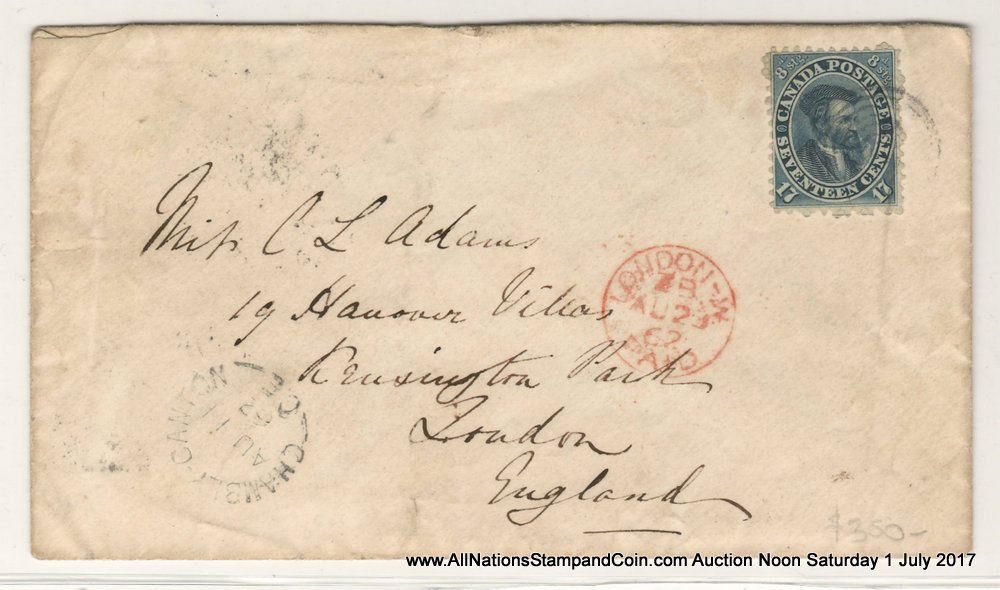 8d stg. 8d stg.
CANADA POSTAGE
SEVENTEEN CENTS
17 17
Miss C L Adams
19 Hanover Villas
Kensington Park
London
England
LONDON-W
AU 23
62
PAID
CHAMBLY-CANTON
AU
62
C.E
$350-
www.AllNationsStampandCoin.com Auction Noon Saturday 1 July 2017